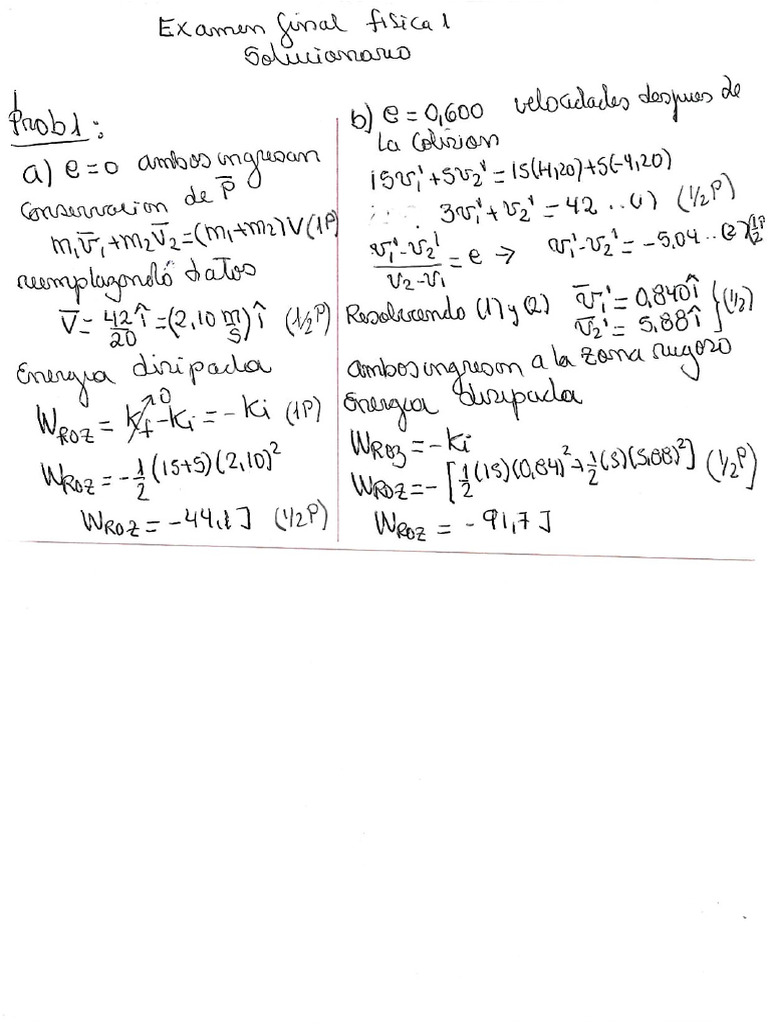 Examen final física 1
Solucionario
Prob1:
a) e=0 ambos ingresan
Conservacion de P̄
m₁v̄₁+m₂v̄₂=(m₁+m₂)V (1P)
reemplazando datos
V̄=42î/20=(2,10 m/s)î (1/2P)
Energia disipada
W_ROZ = K_f⁰-Ki = -Ki (1P)
W_ROZ=-1/2(15+5)(2,10)²
W_ROZ = -44,1J (1/2P)
b) e=0,600 velocidades despues de
la colision
15v₁'+5v₂'=15(4,20)+5(-4,20)
3v₁'+v₂'=42 ..(1) (1/2P)
v₁'-v₂'/v₂-v₁=e → v₁'-v₂'=-5,04..(2) (1P/2)
Resolviendo (1) y (2) v̄₁'=0,840î
v̄₂'=5,88î } (1/2)
ambos ingresan a la zona rugoso
Energia disipada
W_ROZ=-Ki
W_ROZ=-[1/2(15)(0,84)²+1/2(5)(5,88)²] (1/2P)
W_ROZ = -91,7J